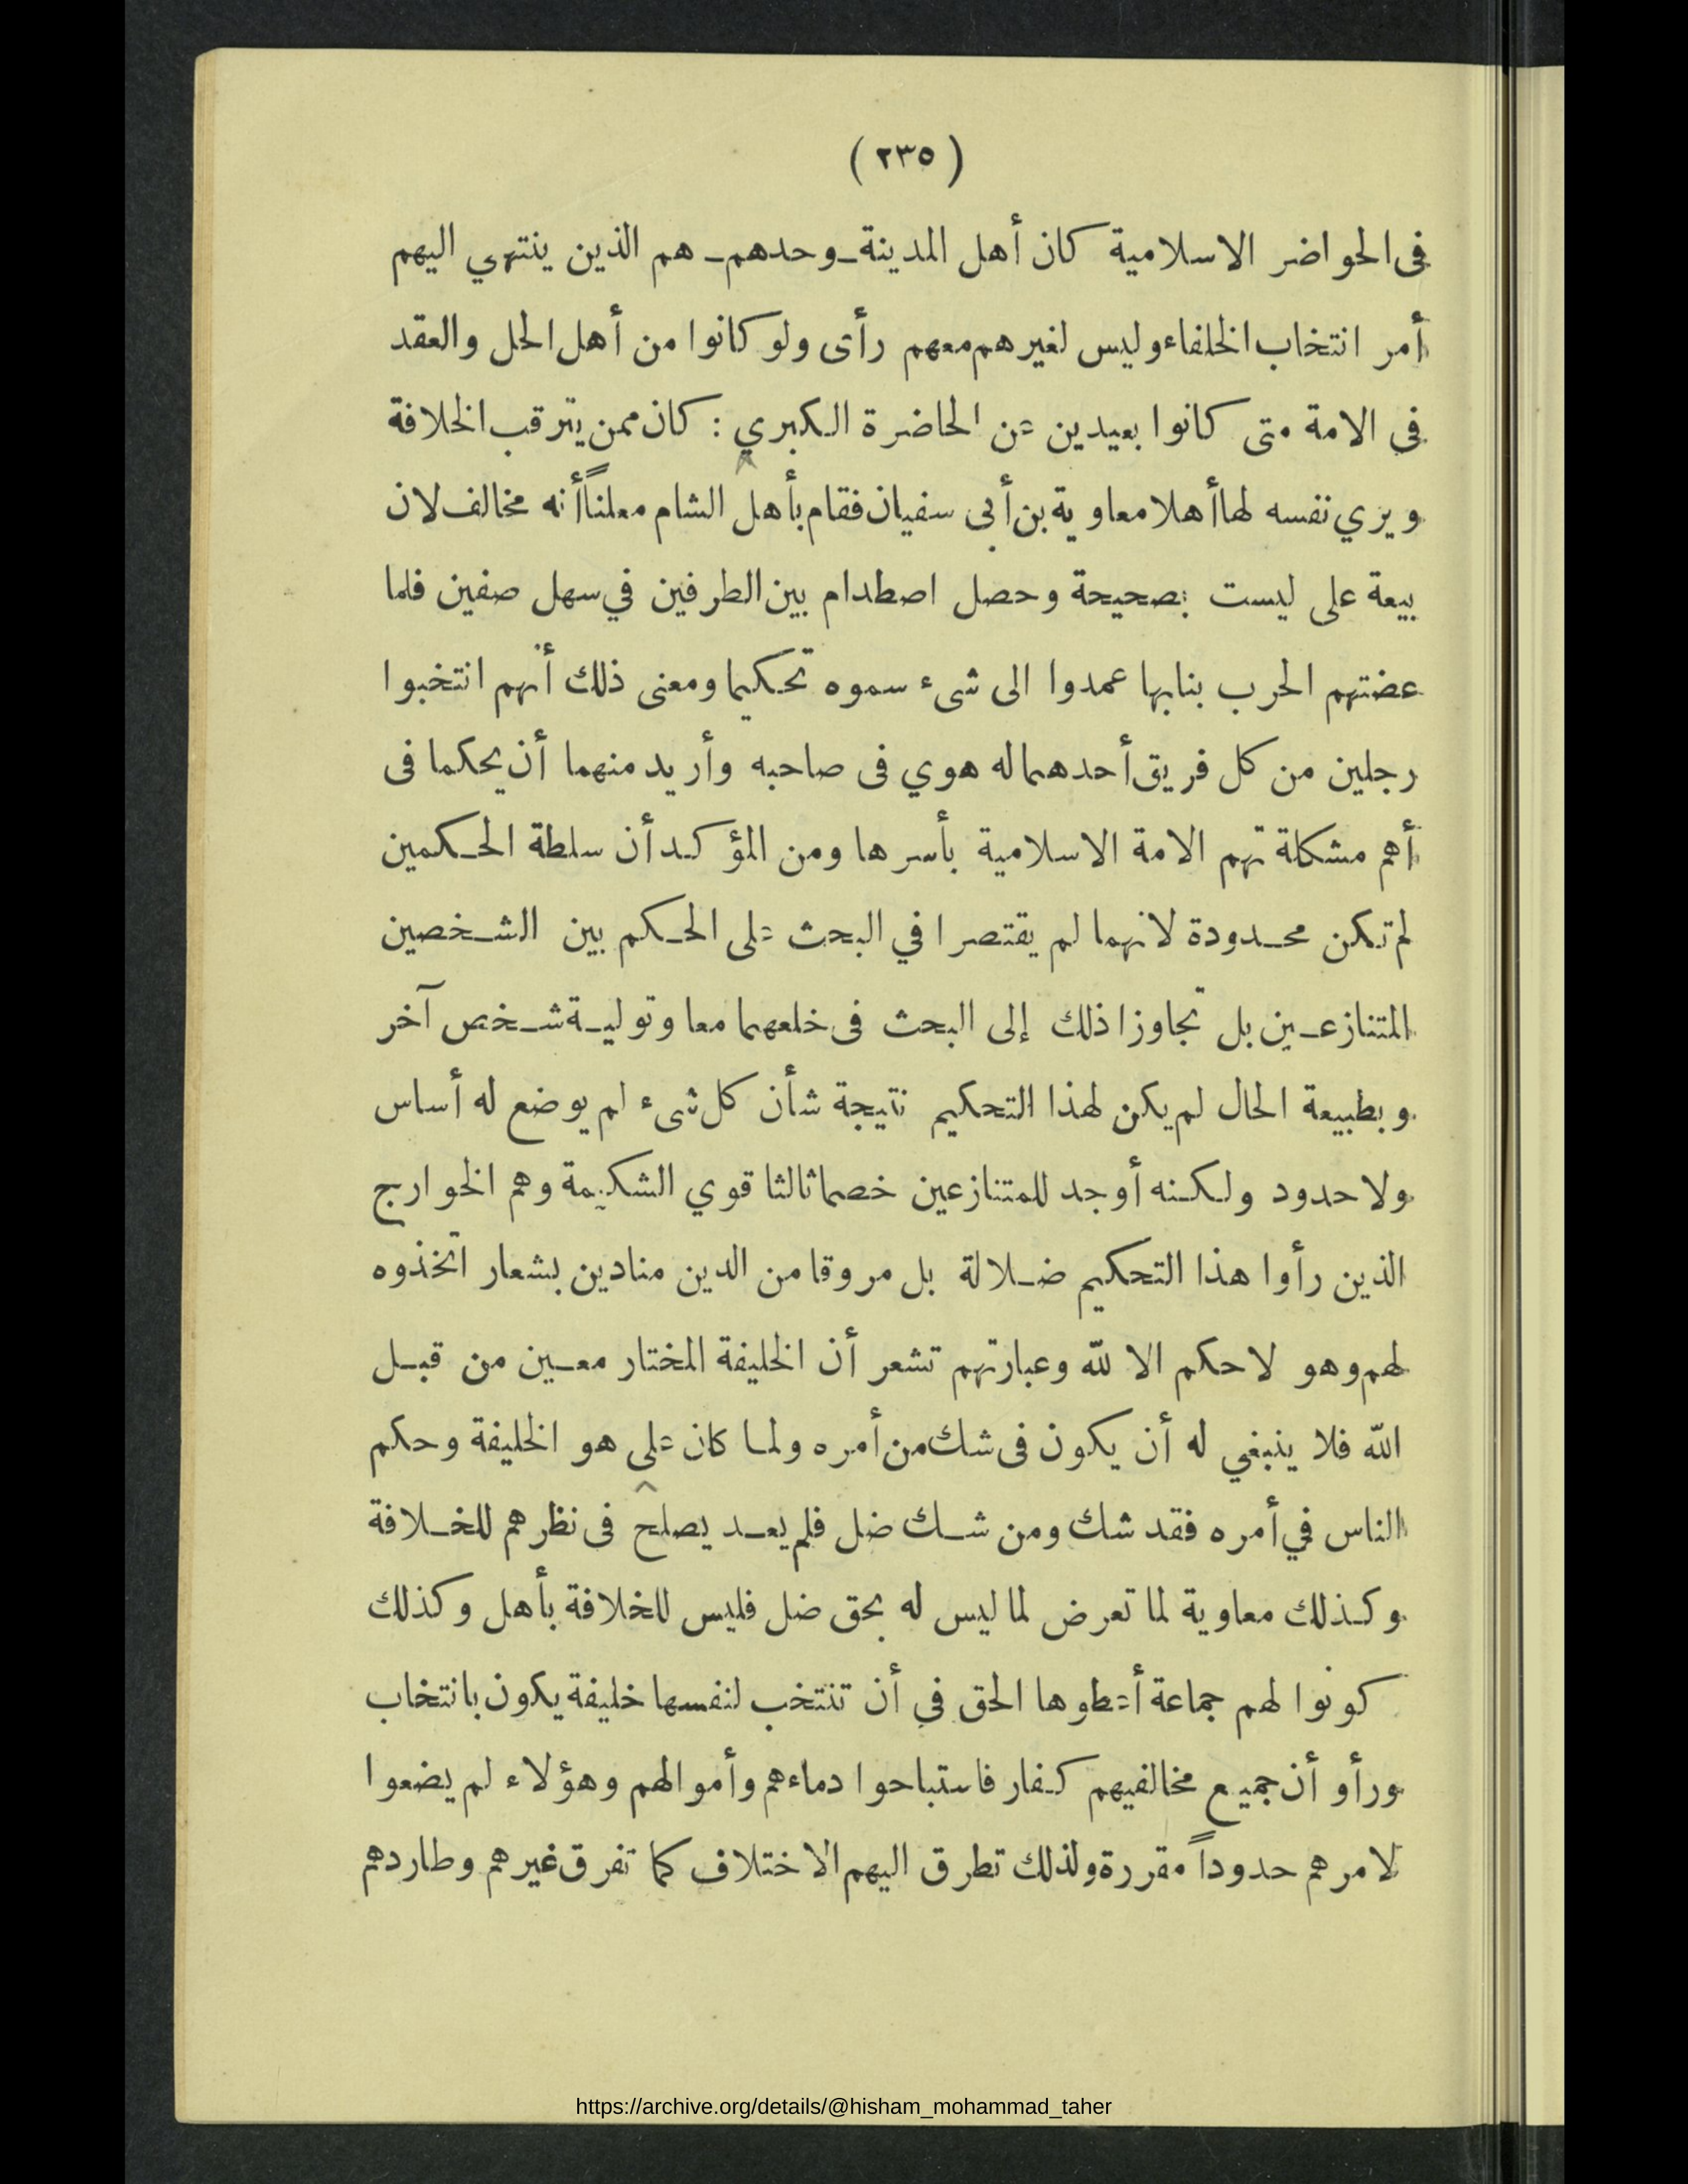 ( ٢٣٥ )
فى الحواضر الاسلامية كان أهل المدينة ـ وحدهم ـ هم الذين ينتهي اليهم
أمر انتخاب الخلفاء وليس لغيرهم معهم رأى ولو كانوا من أهل الحل والعقد
فى الامة متى كانوا بعيدين عن الحاضرة الكبري : كان ممن يترقب الخلافة
ويري نفسه لها أهلا معاوية بن أبى سفيان فقام بأهل الشام معلناً أنه مخالف لان
بيعة على ليست بصحيحة وحصل اصطدام بين الطرفين في سهل صفين فلما
عضتهم الحرب بنابها عمدوا الى شىء سموه تحكيما ومعنى ذلك أنهم انتخبوا
رجلين من كل فريق أحدهما له هوي فى صاحبه وأريد منهما أن يحكما فى
أهم مشكلة تهم الامة الاسلامية بأسرها ومن المؤكد أن سلطة الحكمين
لم تكن محدودة لانهما لم يقتصرا في البحث على الحكم بين الشخصين
المتنازعين بل تجاوزا ذلك إلى البحث فى خلعهما معا وتولية شخص آخر
وبطبيعة الحال لم يكن لهذا التحكيم نتيجة شأن كل شىء لم يوضع له أساس
ولا حدود ولكنه أوجد للمتنازعين خصما ثالثا قوي الشكيمة وهم الخوارج
الذين رأوا هذا التحكيم ضلالة بل مروقا من الدين منادين بشعار اتخذوه
لهم وهو لا حكم الا لله وعبارتهم تشعر أن الخليفة المختار معين من قبل
الله فلا ينبغي له أن يكون فى شك من أمره ولما كان على هو الخليفة وحكم
الناس في أمره فقد شك ومن شك ضل فلم يعد يصلح فى نظرهم للخلافة
وكذلك معاوية لما تعرض لما ليس له بحق ضل فليس للخلافة بأهل وكذلك
كونوا لهم جماعة أعطوها الحق في أن تنتخب لنفسها خليفة يكون بانتخاب
ورأو أن جميع مخالفيهم كفار فاستباحوا دماءهم وأموالهم وهؤلاء لم يضعوا
لامرهم حدوداً مقررة ولذلك تطرق اليهم الاختلاف كما تفرق غيرهم وطاردهم
https://archive.org/details/@hisham_mohammad_taher